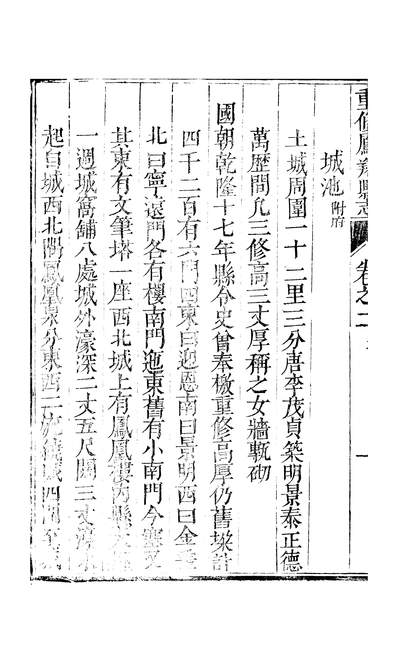 重修鳳翔縣志
卷之二
城池附府
土城周圍一十二里三分唐李茂貞築明景泰正德
萬歷間凡三修高三丈厚稱之女牆甎砌
國朝乾隆十七年縣令史曾奉檄重修高厚仍舊垛計
四千二百有六門四東曰迎恩南曰景明西曰金
北曰寧遠門各有樓南門迤東舊有小南門今塞
其東有文筆塔一座西北城上有鳳凰樓
一週城窩舖八處城外濠深二丈五尺闊三丈濠水
起自城西北隅鳳凰泉分東西二流繞城四